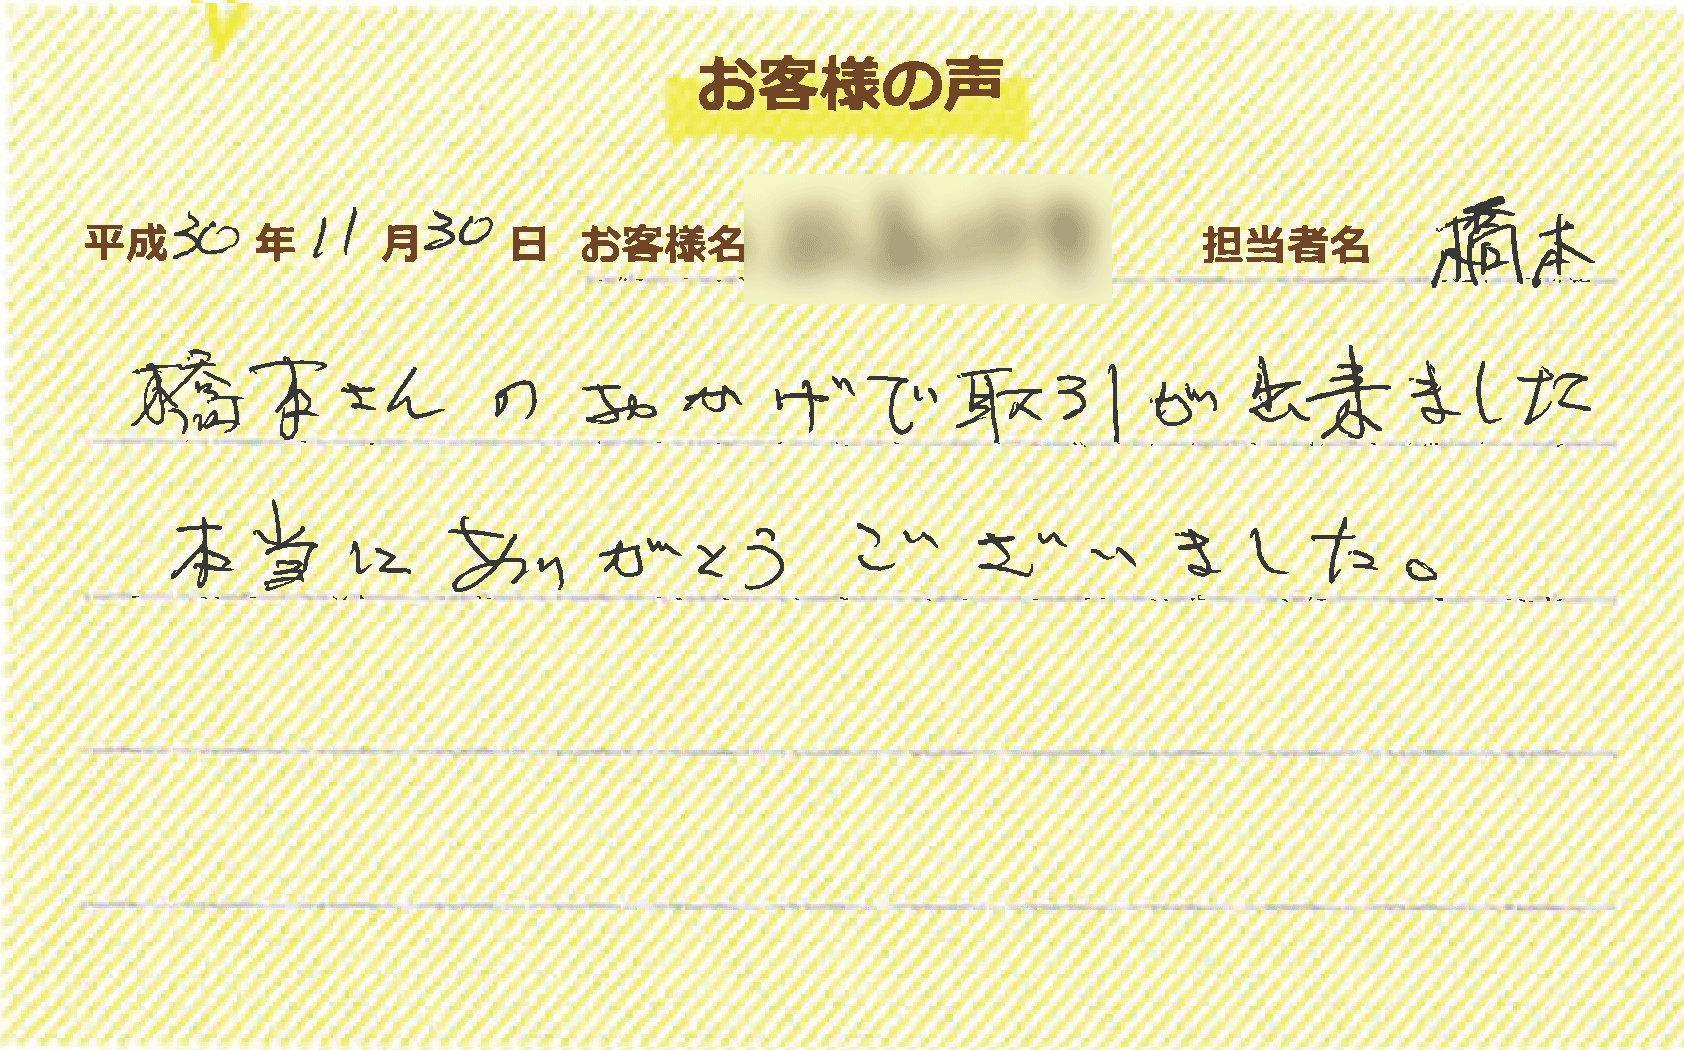 お客様の声
平成30年11月30日 お客様名 担当者名 橋本
橋本さんのおかげで取引が出来ました
本当にありがとうございました。